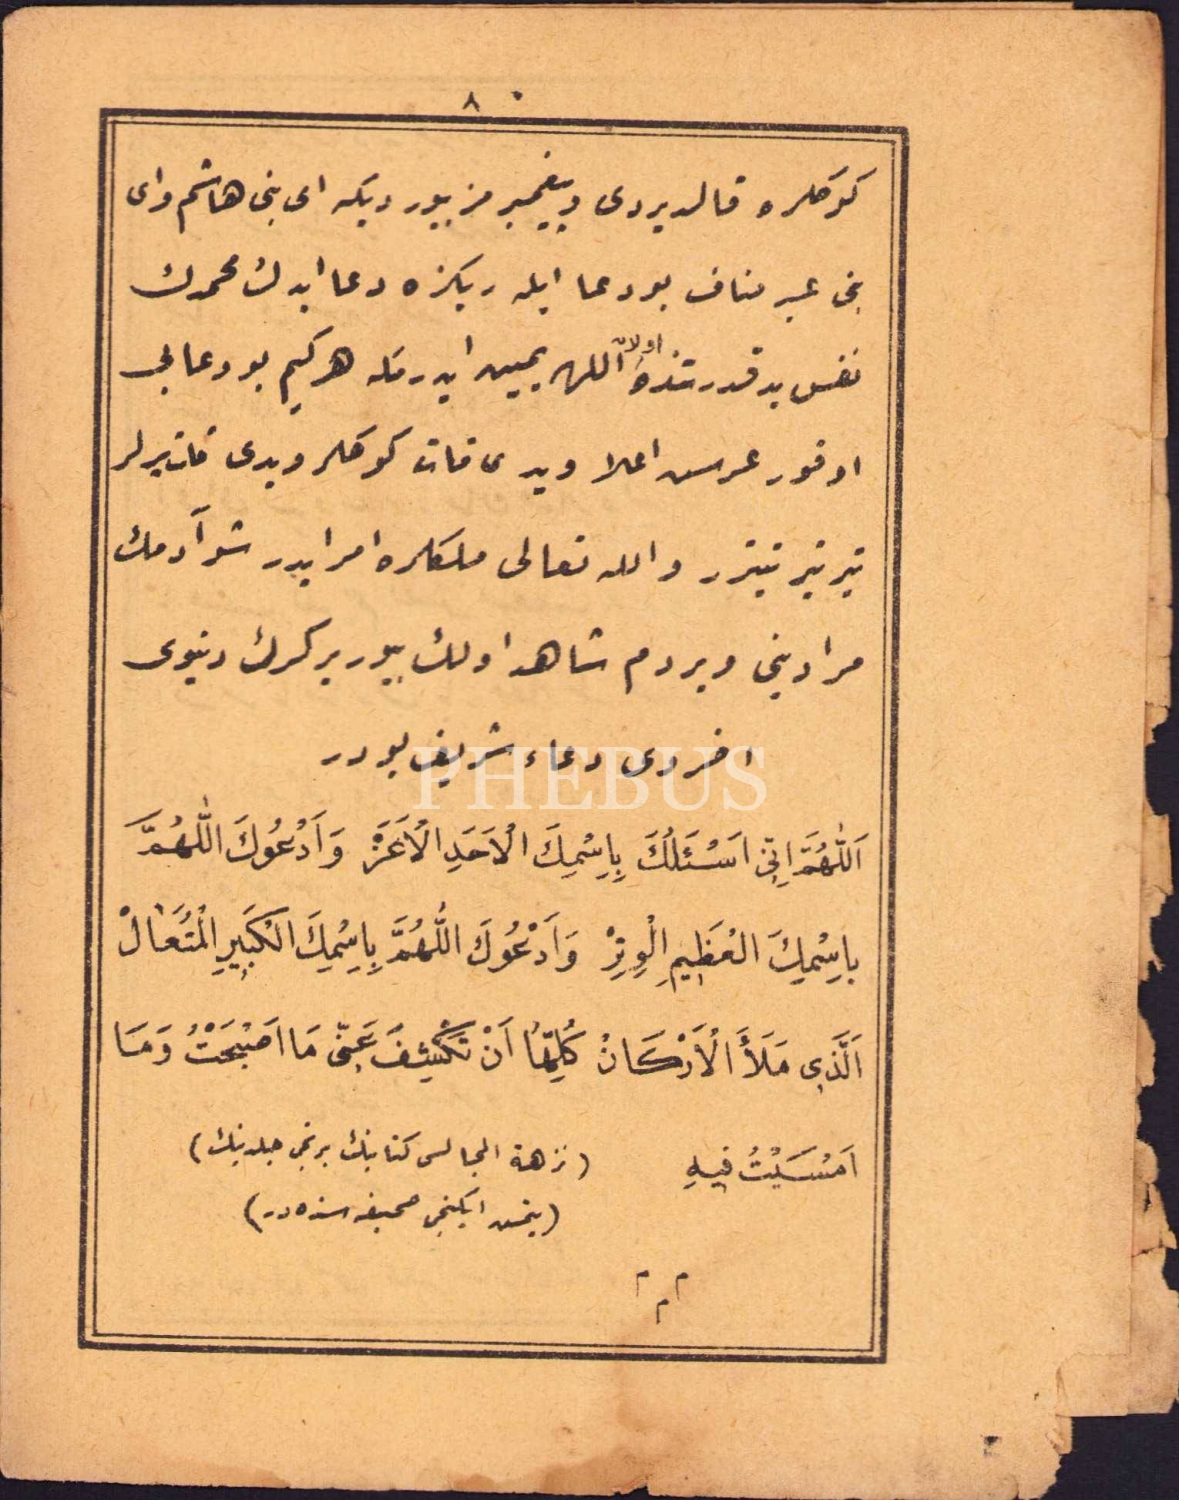 ٨٠
كوكلره قالديردى و پيغمبرمز بيورديكه اى بنى هاشم واى
بنى عبد مناف بو دعا ايله ربكزه دعا ايدك محمدك
نفس يد قدرتنده اولان اللهه يمين ايدرمكه هركيم بو دعايى
اوقور عرش اعلا ويدى قات كوكلر ويدى قات يرلر
تير تير تيترر والله تعالى ملكلره امر ايدر شو آدمك
مرادينى ويردم شاهد اولك بيورير كرك دنيوى
اخروى دعاء شريف بودر
اَللّٰهُمَّ اِنِّى اَسْئَلُكَ بِاِسْمِكَ الْاَحَدِ الْاَعَزّْ وَاَدْعُوكَ اللّٰهُمَّ
بِاِسْمِكَ الْعَظِيمِ الْوِتِرْ وَاَدْعُوكَ اللّٰهُمَّ بِاِسْمِكَ الْكَبِيرِ الْمُتَعَالْ
اَلَّذِى مَلَأَ الْاَرْكَانْ كُلِّهَا اَنْ تَكْشِفَ عَنِّى مَا اَصْبَحْتُ وَمَا
اَمْسَيْتُ فِيهِ (نزهة المجالس كتابنك برنجى جلدينك)
(يتمش ايكنجى صحيفه سنده در)
م م م
PHEBUS